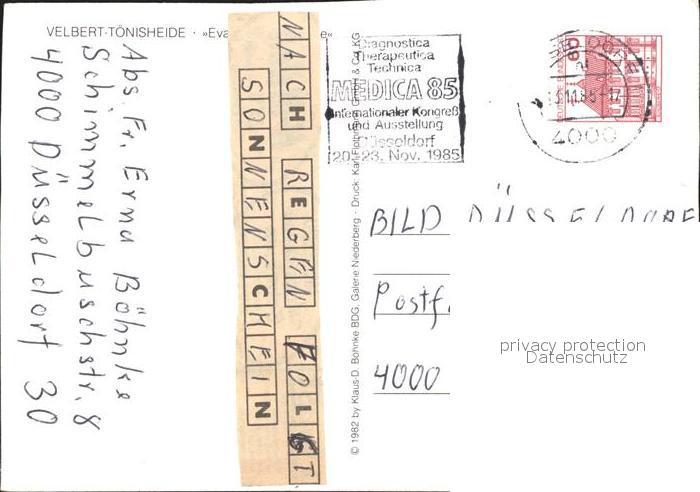 VELBERT-TÖNISHEIDE · »Eva
e«
Diagnostica
Therapeutica
Technica
MEDICA 85
Internationaler Kongreß
und Ausstellung
Düsseldorf
20.-23. Nov. 1985
60
4000
Abs. Fr. Erna Böhnke
Schimmelbuschstr. 8
4000 Düsseldorf 30
NACH REGEN FOLGT
SONNENSCHEIN
© 1982 by Klaus-D. Bohnke BDG, Galerie Niederberg · Druck: Karl
BILD DÜSSELDORF
Postf.
4000
privacy protection
Datenschutz